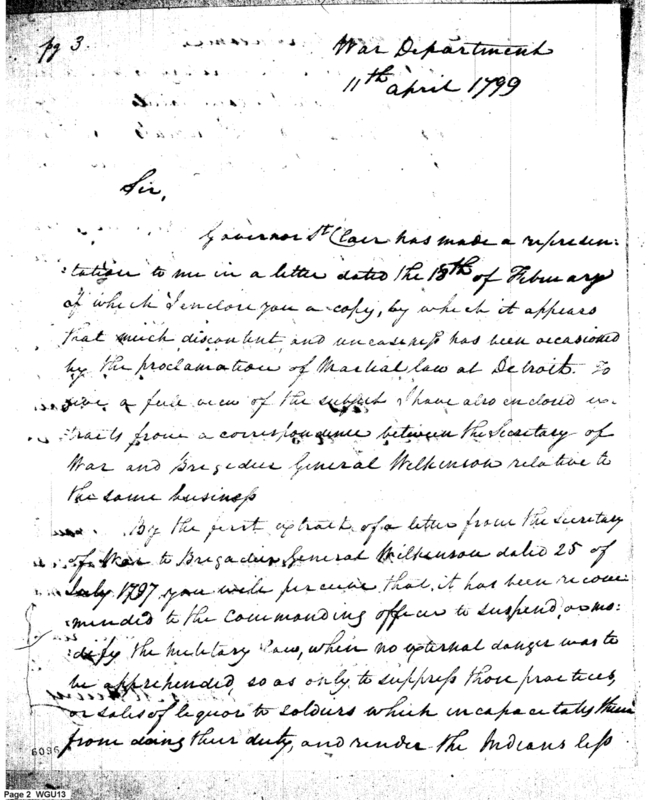 pg 3.
War Department
11th april 1799
Sir,
Governor St Clair has made a represen:
:tation to me in a letter dated the 18th of February
of which I enclose you a copy, by which it appears
that much discontent, and uneasiness has been occasioned
by the proclamation of Martial law at Detroit. To
give a full view of the subject I have also enclosed ex-
tracts from a correspondence between the Secretary of
War and Brigadier General Wilkinson relative to
the same business
By the first extract of a letter from the Secretary
of War to Brigadier General Wilkinson dated 25 of
July 1797 you will perceive that, it has been recom:
mended to the commanding officer to suspend, or mo:
:dify the military law, when no external danger was to
be apprehended, so as only to suppress those practices,
or sales of liquor to soldiers which incapacitates them
from doing their duty, and render the Indians less
6096
Page 2 WGU13